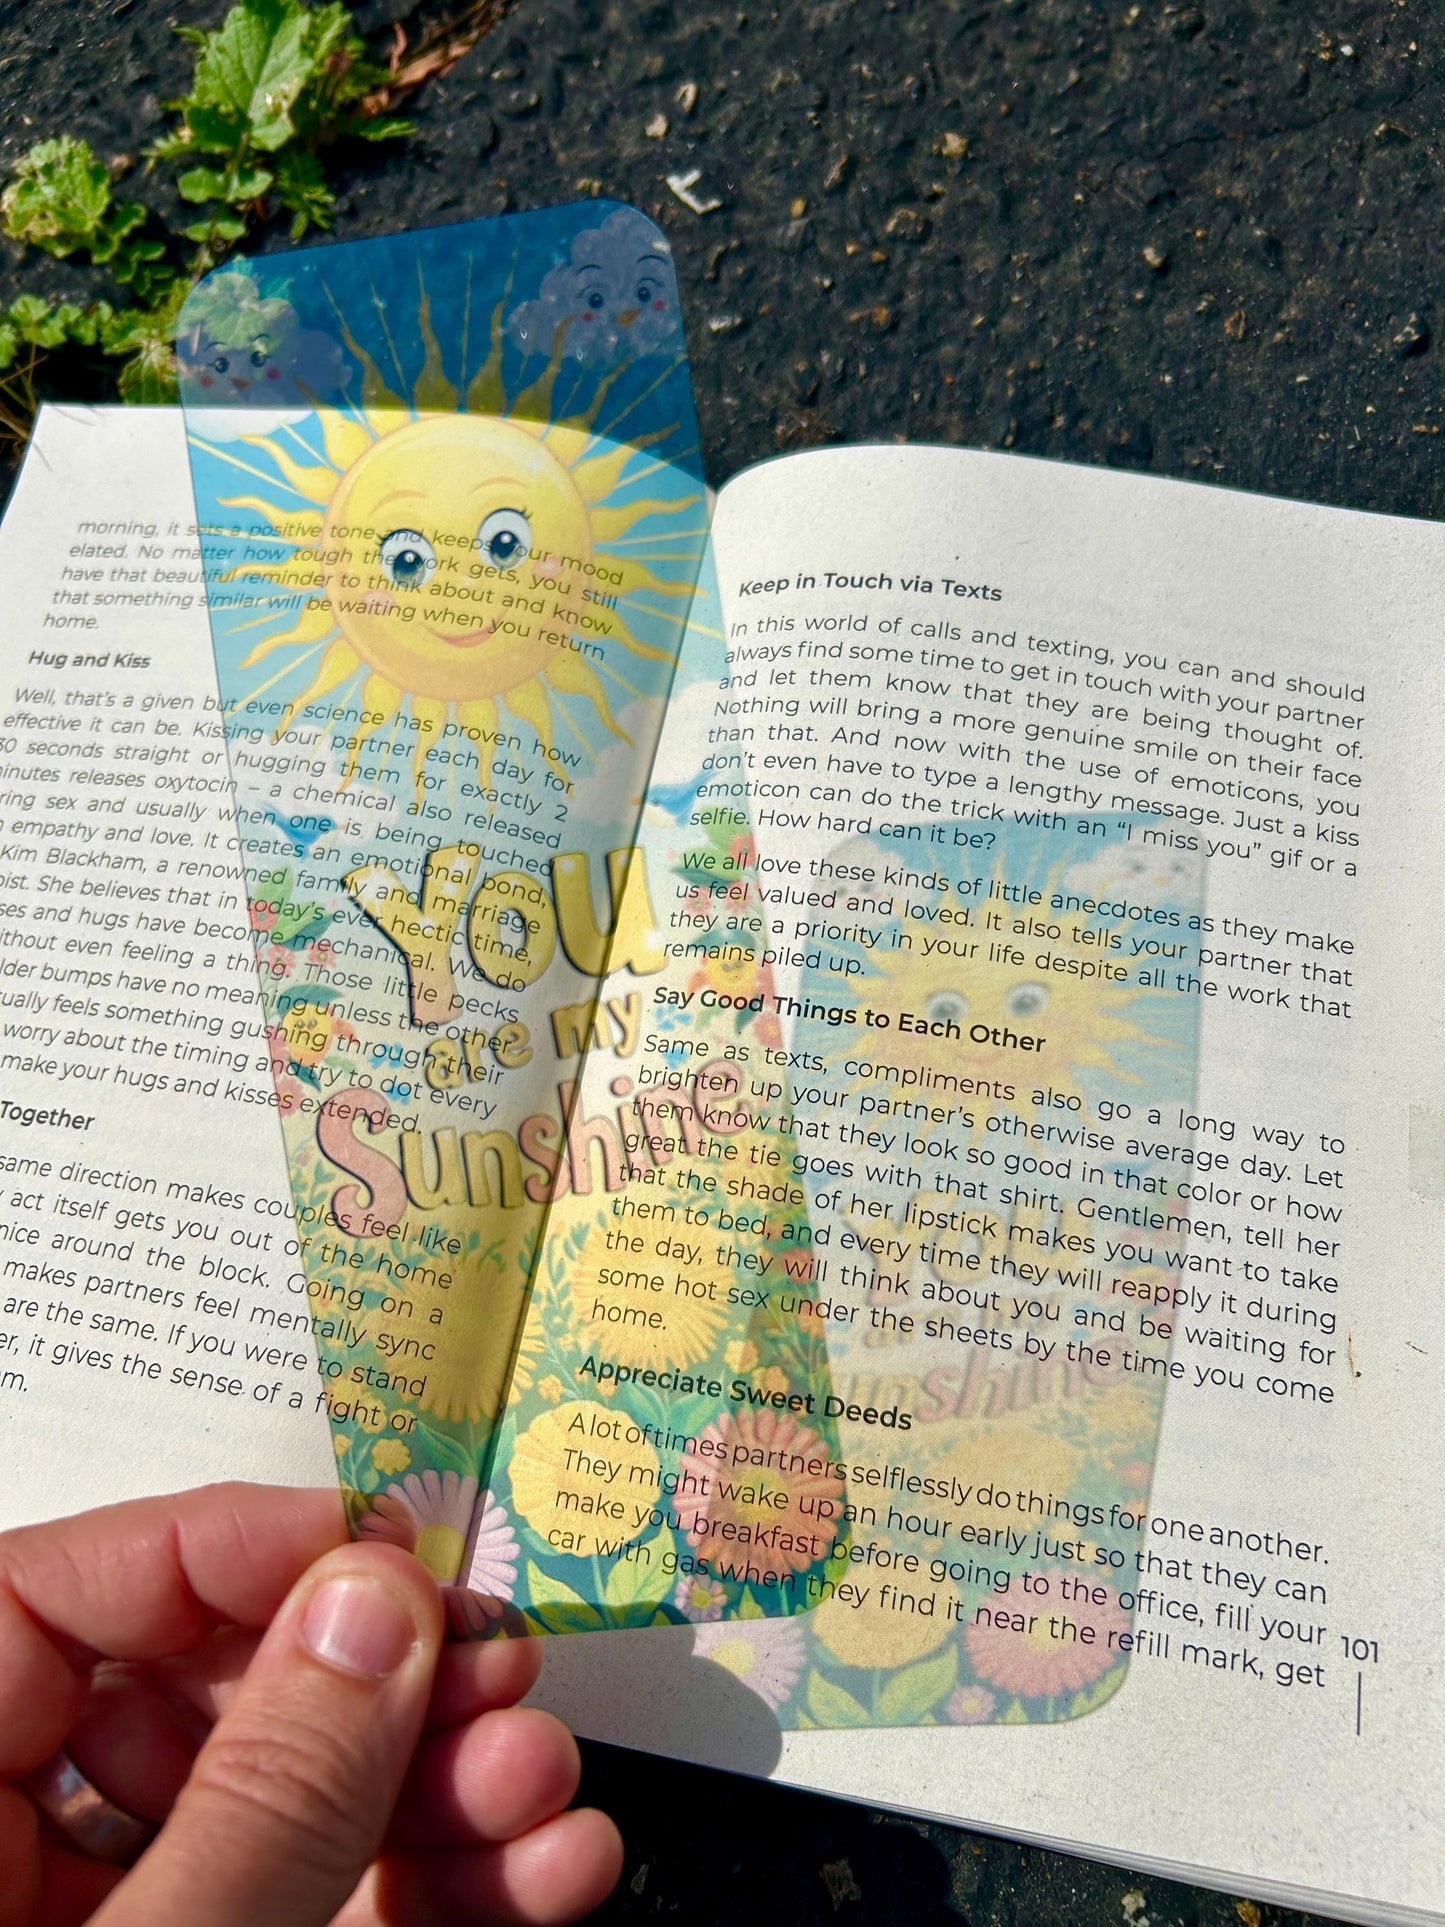 morning, it sets a positive tone and keeps your mood
elated. No matter how tough the work gets, you still
have that beautiful reminder to think about and know
that something similar will be waiting when you return
home.
Hug and Kiss
Well, that's a given but even science has proven how
effective it can be. Kissing your partner each day for
30 seconds straight or hugging them for exactly 2
minutes releases oxytocin – a chemical also released
ring sex and usually when one is being touched
empathy and love. It creates an emotional bond,
Kim Blackham, a renowned family and marriage
She believes that in today's ever hectic time,
ses and hugs have become mechanical. We do
ithout even feeling a thing. Those little pecks
lder bumps have no meaning unless the other
tually feels something gushing through their
worry about the timing and try to dot every
make your hugs and kisses extended.
Together
same direction makes couples feel like
act itself gets you out of the home
nice around the block. Going on a
makes partners feel mentally sync
are the same. If you were to stand
er, it gives the sense of a fight or
m.
You
are my
Sunshine
Keep in Touch via Texts
In this world of calls and texting, you can and should
always find some time to get in touch with your partner
and let them know that they are being thought of.
Nothing will bring a more genuine smile on their face
than that. And now with the use of emoticons, you
don't even have to type a lengthy message. Just a kiss
emoticon can do the trick with an “I miss you” gif or a
selfie. How hard can it be?
We all love these kinds of little anecdotes as they make
us feel valued and loved. It also tells your partner that
they are a priority in your life despite all the work that
remains piled up.
Say Good Things to Each Other
Same as texts, compliments also go a long way to
brighten up your partner's otherwise average day. Let
them know that they look so good in that color or how
great the tie goes with that shirt. Gentlemen, tell her
that the shade of her lipstick makes you want to take
them to bed, and every time they will reapply it during
the day, they will think about you and be waiting for
some hot sex under the sheets by the time you come
home.
Appreciate Sweet Deeds
A lot of times partners selflessly do things for one another.
They might wake up an hour early just so that they can
make you breakfast before going to the office, fill your
car with gas when they find it near the refill mark, get
101